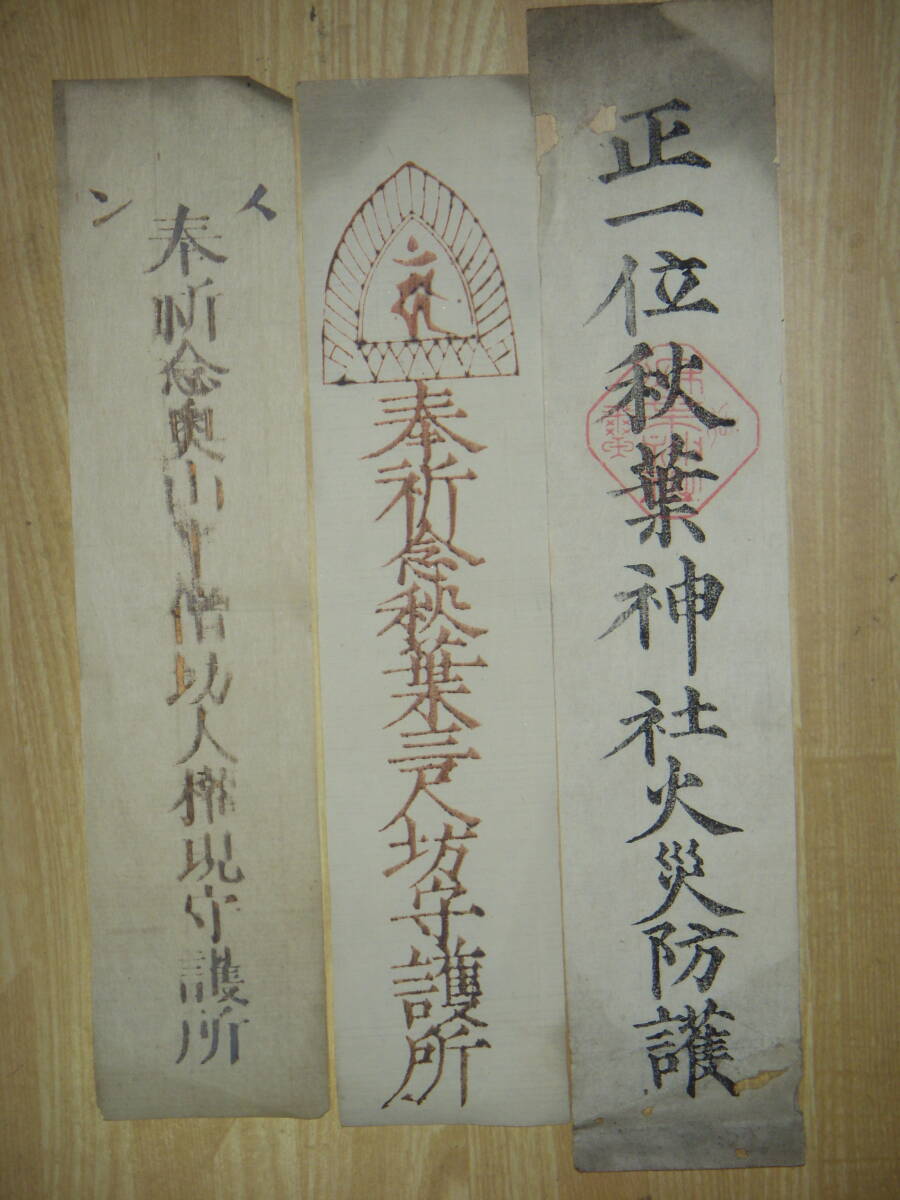 正一位秋葉神社火災防護
奉祈念秋葉三尺坊守護所
奉祈念奥山半僧坊大権現守護所